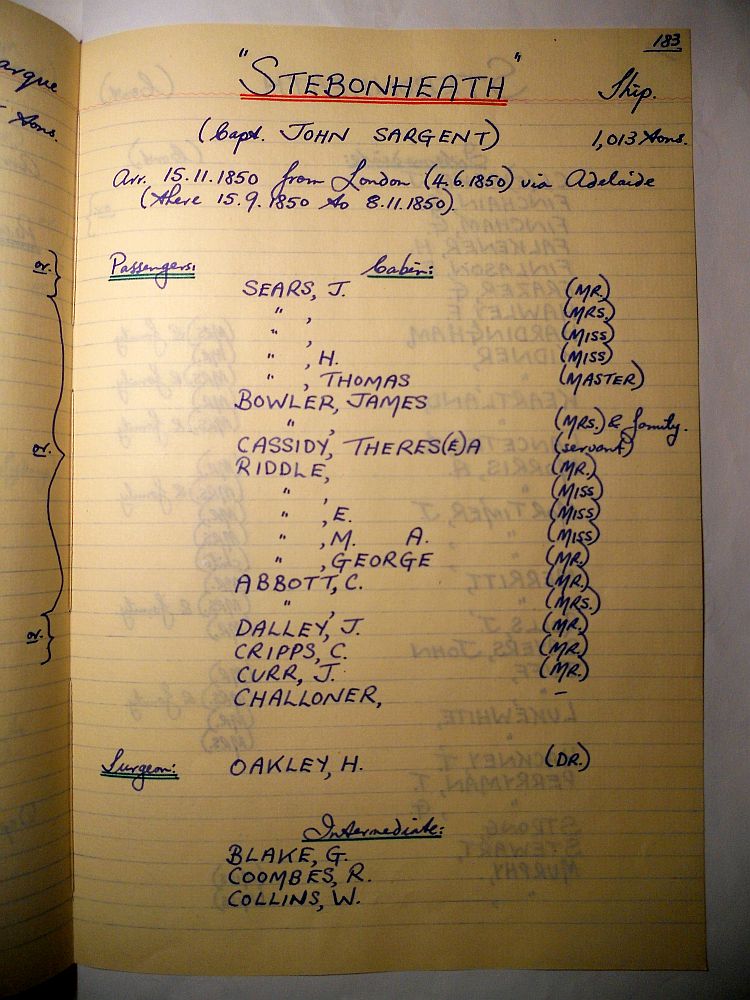 183
"STEBONHEATH" Ship.
(Capt. JOHN SARGENT) 1,013 tons.
Arr. 15.11.1850 from London (4.6.1850) via Adelaide
(there 15.9.1850 to 8.11.1850)
Passengers: Cabin:
SEARS, J. (MR.)
" , (MRS.)
" , (MISS)
" , H. (MISS)
" , THOMAS (MASTER)
BOWLER, JAMES
" , (MRS.) & family.
CASSIDY, THERES(E)A (servant)
RIDDLE, (MR.)
" , (MISS)
" , E. (MISS)
" , M. A. (MISS)
" , GEORGE (MR.)
ABBOTT, C. (MR.)
" , (MRS.)
DALLEY, J. (MR.)
CRIPPS, C. (MR.)
CURR, J. (MR.)
CHALLONER, –
Surgeon: OAKLEY, H. (DR.)
Intermediate:
BLAKE, G.
COOMBES, R.
COLLINS, W.
tons.
or.
or.
or.